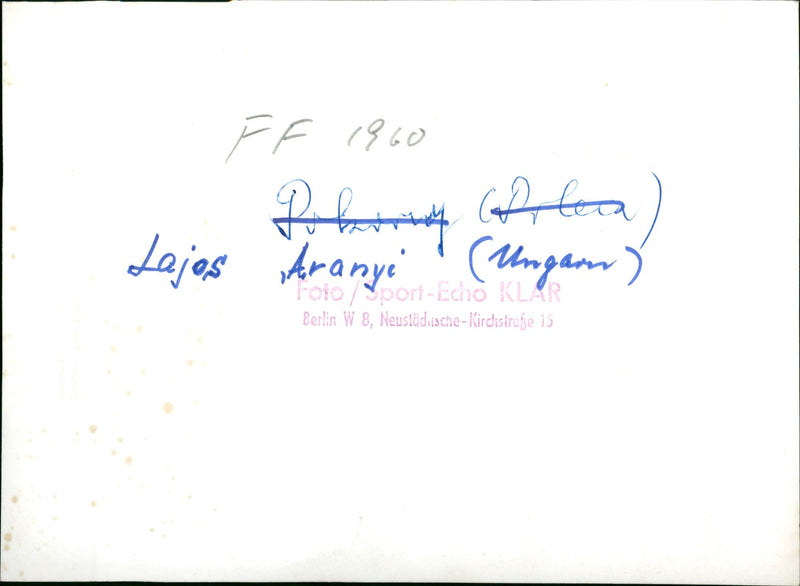 FF 1960
Pokorny (Polen)
Lajos Aranyi (Ungarn)
Foto / Sport-Echo KLAR
Berlin W 8, Neustädtische-Kirchstraße 15